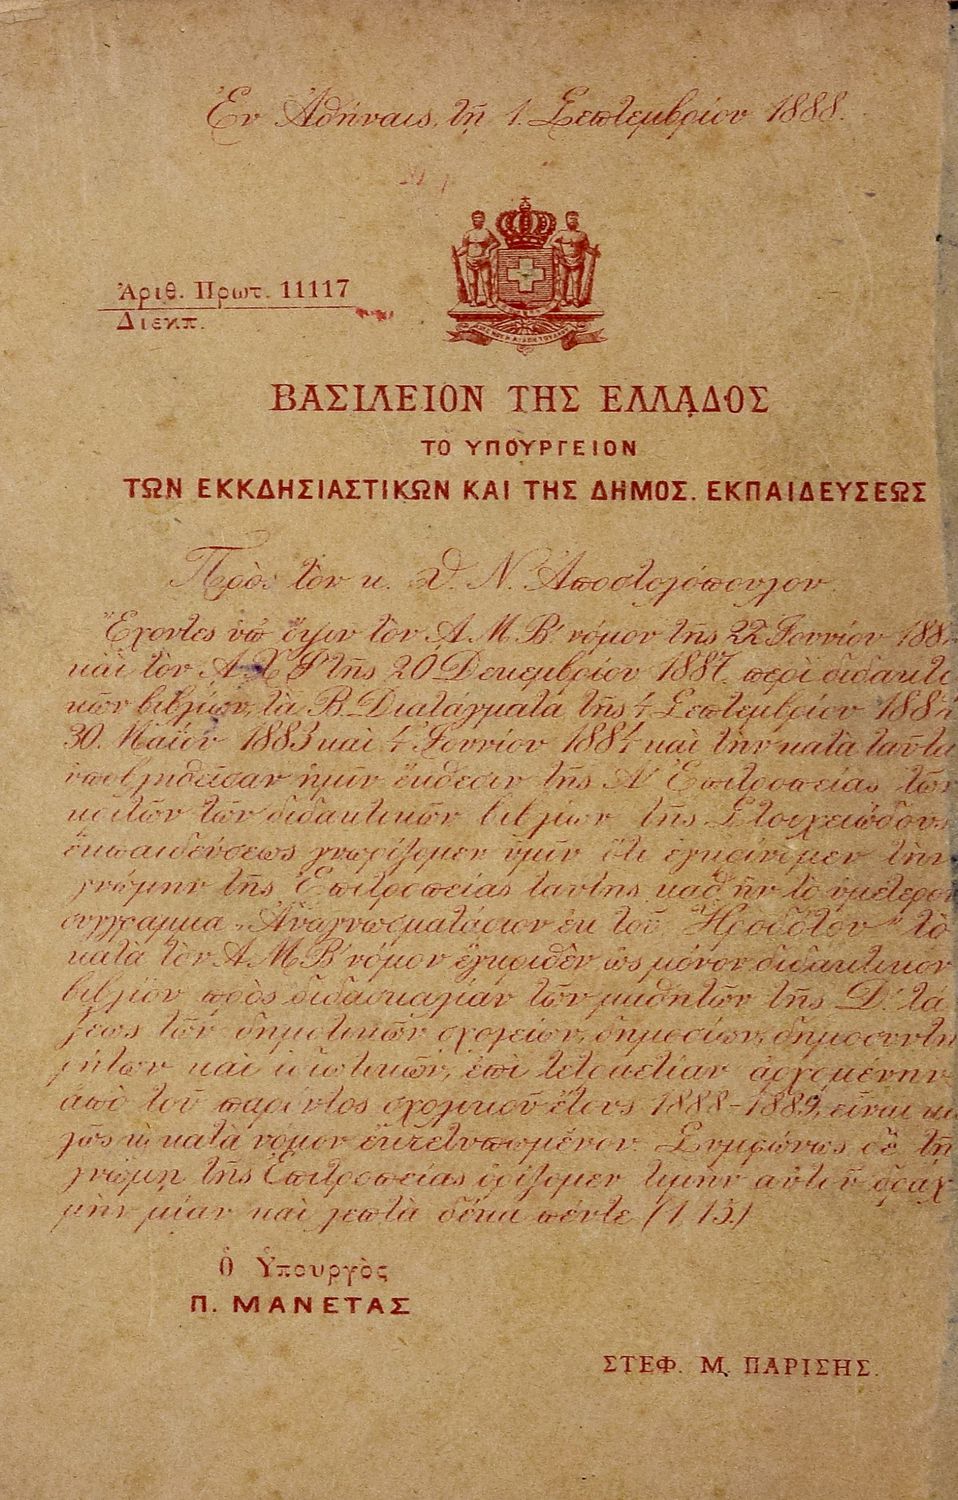 Ἐν Ἀθήναις, τῇ 1. Σεπτεμβρίου 1888.
Ἀριθ. Πρωτ. 11117
Διεκπ.
ΒΑΣΙΛΕΙΟΝ ΤΗΣ ΕΛΛΑΔΟΣ
ΤΟ ΥΠΟΥΡΓΕΙΟΝ
ΤΩΝ ΕΚΚΔΗΣΙΑΣΤΙΚΩΝ ΚΑΙ ΤΗΣ ΔΗΜΟΣ. ΕΚΠΑΙΔΕΥΣΕΩΣ
Πρὸς τὸν κ. Θ. Ν. Ἀποστολόπουλον.
Ἔχοντες ὑπ' ὄψιν τὸν Α Μ Β' νόμον τῆς 22 Ἰουνίου
καὶ τὸν τῆς 20 Δεκεμβρίου 1887, περὶ διδακτι
κῶν βιβλίων, τὰ Β. Διατάγματα τῆς 4 Σεπτεμβρίου
30. Μαΐου 1883 καὶ 4 Ἰουνίου 1884 καὶ τὴν κατὰ ταῦτα
ὑποβληθεῖσαν ἡμῖν ἔκθεσιν τῆς Α' Ἐπιτροπείας τῶν
κριτῶν τῶν διδακτικῶν βιβλίων τῆς Στοιχειώδους
ἐκπαιδεύσεως γνωρίζομεν ὑμῖν ὅτι ἐγκρίνομεν τὴν
γνώμην τῆς Ἐπιτροπείας ταύτης καθ' ἣν τὸ ὑμέτερον
σύγγραμμα „Ἀναγνωσματάριον ἐκ τοῦ Ἡροδότου" τὸ
κατὰ τὸν Α Μ Β' νόμον ἐγκριθὲν ὡς μόνον διδακτικὸν
βιβλίον πρὸς διδασκαλίαν τῶν μαθητῶν τῆς Δ' τά
ξεως τῶν δημοτικῶν σχολείων, δημοσίων, δημοσυντη
ρήτων καὶ ἰδιωτικῶν, ἐπὶ τετραετίαν ἀρχομένην
ἀπὸ τοῦ παρόντος σχολικοῦ ἔτους 1888-1889, εἶναι κα
λῶς κ κατὰ νόμον ἐκτετυπωμένον. Συμφώνως δὲ τῇ
γνώμῃ τῆς Ἐπιτροπείας ὁρίζομεν τιμὴν αὐτοῦ δραχ
μὴν μίαν καὶ λεπτὰ δέκα πέντε (1,15.)
ὁ Ὑπουργὸς
Π. ΜΑΝΕΤΑΣ
ΣΤΕΦ. Μ. ΠΑΡΙΣΗΣ.